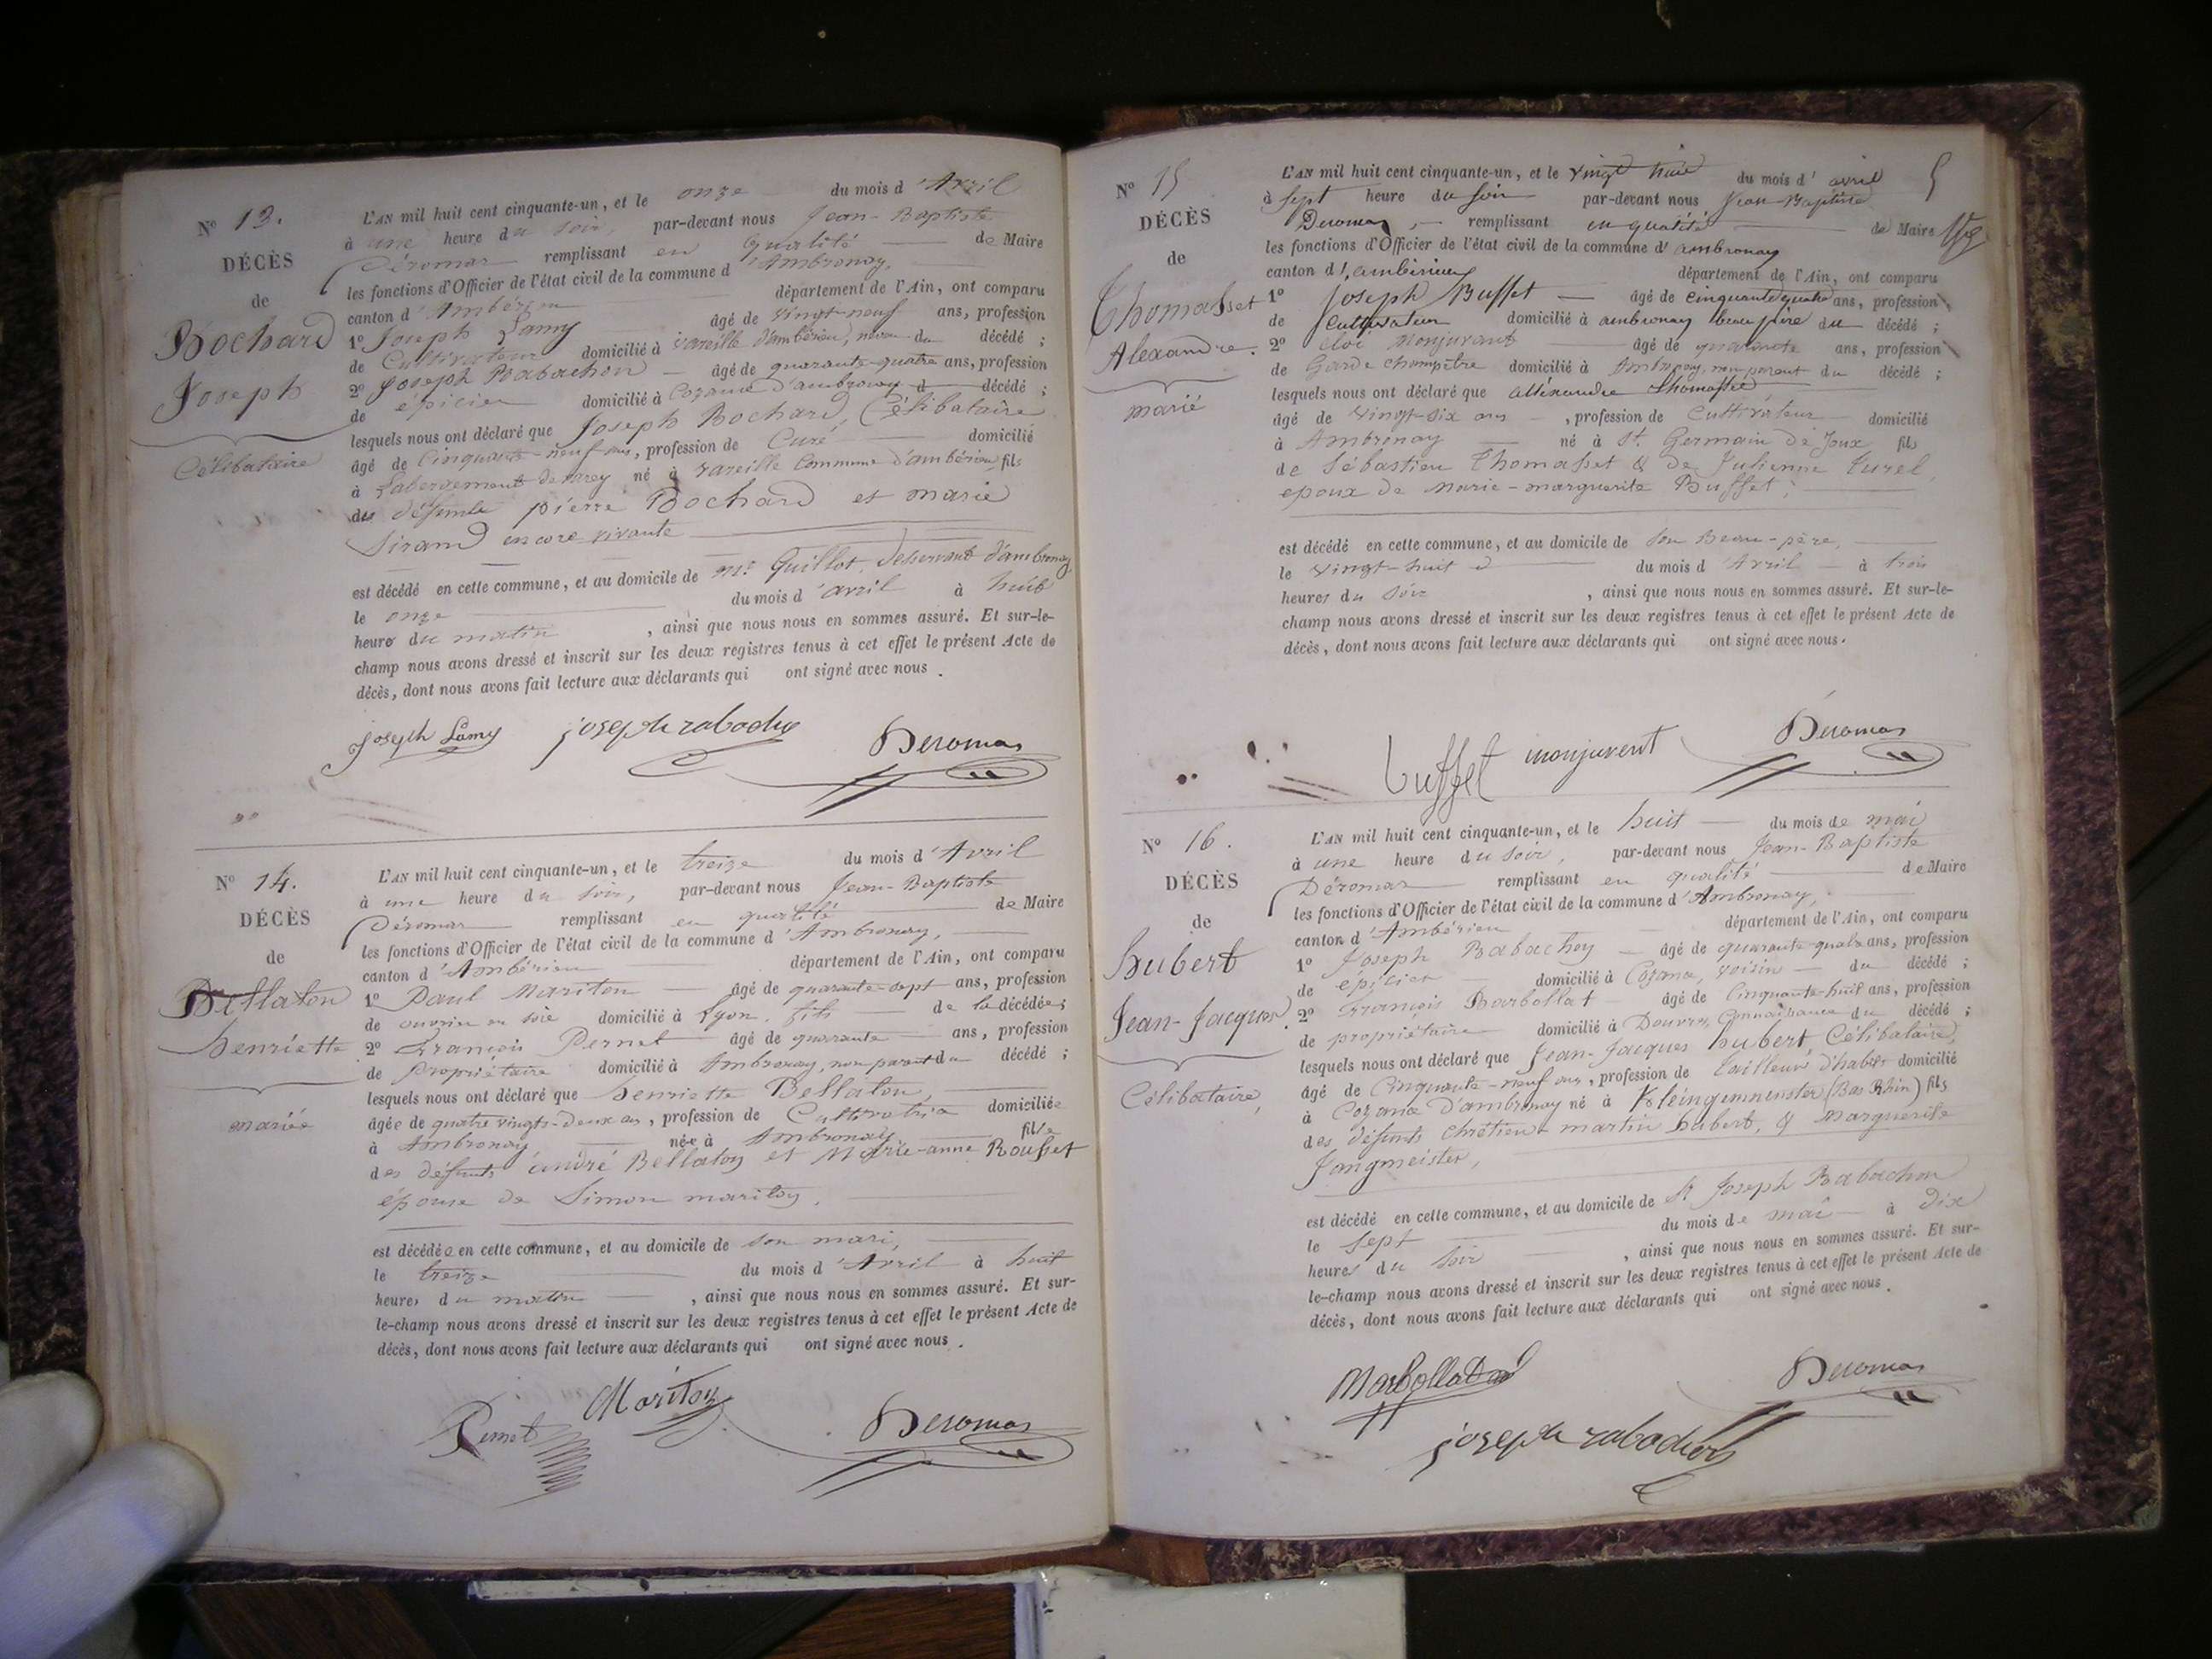 N° 13.
DÉCÈS
de
Bochard
Joseph
Célibataire
L'AN mil huit cent cinquante-un, et le onze du mois d'Avril
à une heure du soir, par-devant nous Jean-Baptiste
Déromas remplissant en qualité de Maire
les fonctions d'Officier de l'état civil de la commune d'Ambronay,
canton d'Ambérieu département de l'Ain, ont comparu
1° Joseph Lamy âgé de vingt-neuf ans, profession
de Cultivateur domicilié à Vareille d'ambérieu, neveu du décédé ;
2° Joseph Rabachon âgé de quarante-quatre ans, profession
de épicier domicilié à Cozance d'ambronay d décédé ;
lesquels nous ont déclaré que Joseph Bochard, Célibataire
âgé de Cinquante-neuf ans, profession de Curé domicilié
à Labergement de Varey né à Vareille Commune d'ambérieu, fils
du défunt pierre Bochard et marie
Sirand encore vivante
est décédé en cette commune, et au domicile de Mr Guillot, desservant d'ambronay
le onze du mois d'avril à huit
heures du matin, ainsi que nous nous en sommes assuré. Et sur-le-
champ nous avons dressé et inscrit sur les deux registres tenus à cet effet le présent Acte de
décès, dont nous avons fait lecture aux déclarants qui ont signé avec nous.
Joseph Lamy joseph rabachon Deromas
N° 14.
DÉCÈS
de
Bellaton
henriette
mariée
L'AN mil huit cent cinquante-un, et le treize du mois d'Avril
à une heure du soir, par-devant nous Jean-Baptiste
Déromas remplissant en qualité de Maire
les fonctions d'Officier de l'état civil de la commune d'Ambronay,
canton d'Ambérieu département de l'Ain, ont comparu
1° Paul Mariton âgé de quarante-sept ans, profession
de ouvrier en soie domicilié à Lyon, fils de la décédée ;
2° François Pernet âgé de quarante ans, profession
de Propriétaire domicilié à Ambronay, non parent du décédé ;
lesquels nous ont déclaré que henriette Bellaton,
âgée de quatre vingts-deux ans, profession de Cultivatrice domiciliée
à Ambronay née à Ambronay fille
des défunts andré Bellaton et Marie-anne Rousset
épouse de Simon mariton.
est décédée en cette commune, et au domicile de son mari,
le treize du mois d'Avril à huit
heures du matin, ainsi que nous nous en sommes assuré. Et sur-
le-champ nous avons dressé et inscrit sur les deux registres tenus à cet effet le présent Acte de
décès, dont nous avons fait lecture aux déclarants qui ont signé avec nous.
Pernet Mariton Deromas
5
N° 15
DÉCÈS
de
Thomasset
Alexandre.
marié
L'AN mil huit cent cinquante-un, et le vingt huit du mois d'avril
à sept heure du soir par-devant nous Jean-Baptiste
Deromas, remplissant en qualité de Maire
les fonctions d'Officier de l'état civil de la commune d'ambronay
canton d'ambérieux département de l'Ain, ont comparu
1° Joseph Buffet âgé de cinquante quatre ans, profession
de Cultivateur domicilié à ambronay beau père du décédé ;
2° éloi Monjuvent âgé de quarante ans, profession
de Garde Champêtre domicilié à Ambronay, non parent du décédé ;
lesquels nous ont déclaré que alléxandre Thomasset
âgé de vingt-six ans, profession de Cultivateur domicilié
à Ambronay né à St. Germain de Joux fils
de Sébastien Thomasset & de Julienne Turel
epoux de Marie-marguerite Buffet ;
est décédé en cette commune, et au domicile de son Beau-père,
le vingt-huit d du mois d'Avril à trois
heures du soir, ainsi que nous nous en sommes assuré. Et sur-le-
champ nous avons dressé et inscrit sur les deux registres tenus à cet effet le présent Acte de
décès, dont nous avons fait lecture aux déclarants qui ont signé avec nous.
buffet monjuvent Deromas
N° 16.
DÉCÈS
de
hubert
Jean-Jacques
Célibataire,
L'AN mil huit cent cinquante-un, et le huit du mois de mai
à une heure du soir, par-devant nous Jean-Baptiste
Déromas remplissant en qualité de Maire
les fonctions d'Officier de l'état civil de la commune d'Ambronay,
canton d'Ambérieu département de l'Ain, ont comparu
1° Joseph Rabachon âgé de quarante-quatre ans, profession
de épicier domicilié à Cozance, voisin du décédé ;
2° François Marbollat âgé de Cinquante-huit ans, profession
de propriétaire domicilié à Douvres, Connaissance du décédé ;
lesquels nous ont déclaré que Jean-Jacques hubert, Célibataire,
âgé de Cinquante-neuf ans, profession de tailleur d'habits domicilié
à Cozance d'ambronay né à Kleingemeinster (Bas Rhin) fils
des défunts chrétien-martin hubert, & Marguerite
Jongmeister,
est décédé en cette commune, et au domicile de Sr Joseph Rabachon
le sept du mois de mai à Dix
heures du soir, ainsi que nous nous en sommes assuré. Et sur-
le-champ nous avons dressé et inscrit sur les deux registres tenus à cet effet le présent Acte de
décès, dont nous avons fait lecture aux déclarants qui ont signé avec nous.
Marbollat Deromas
joseph rabachon